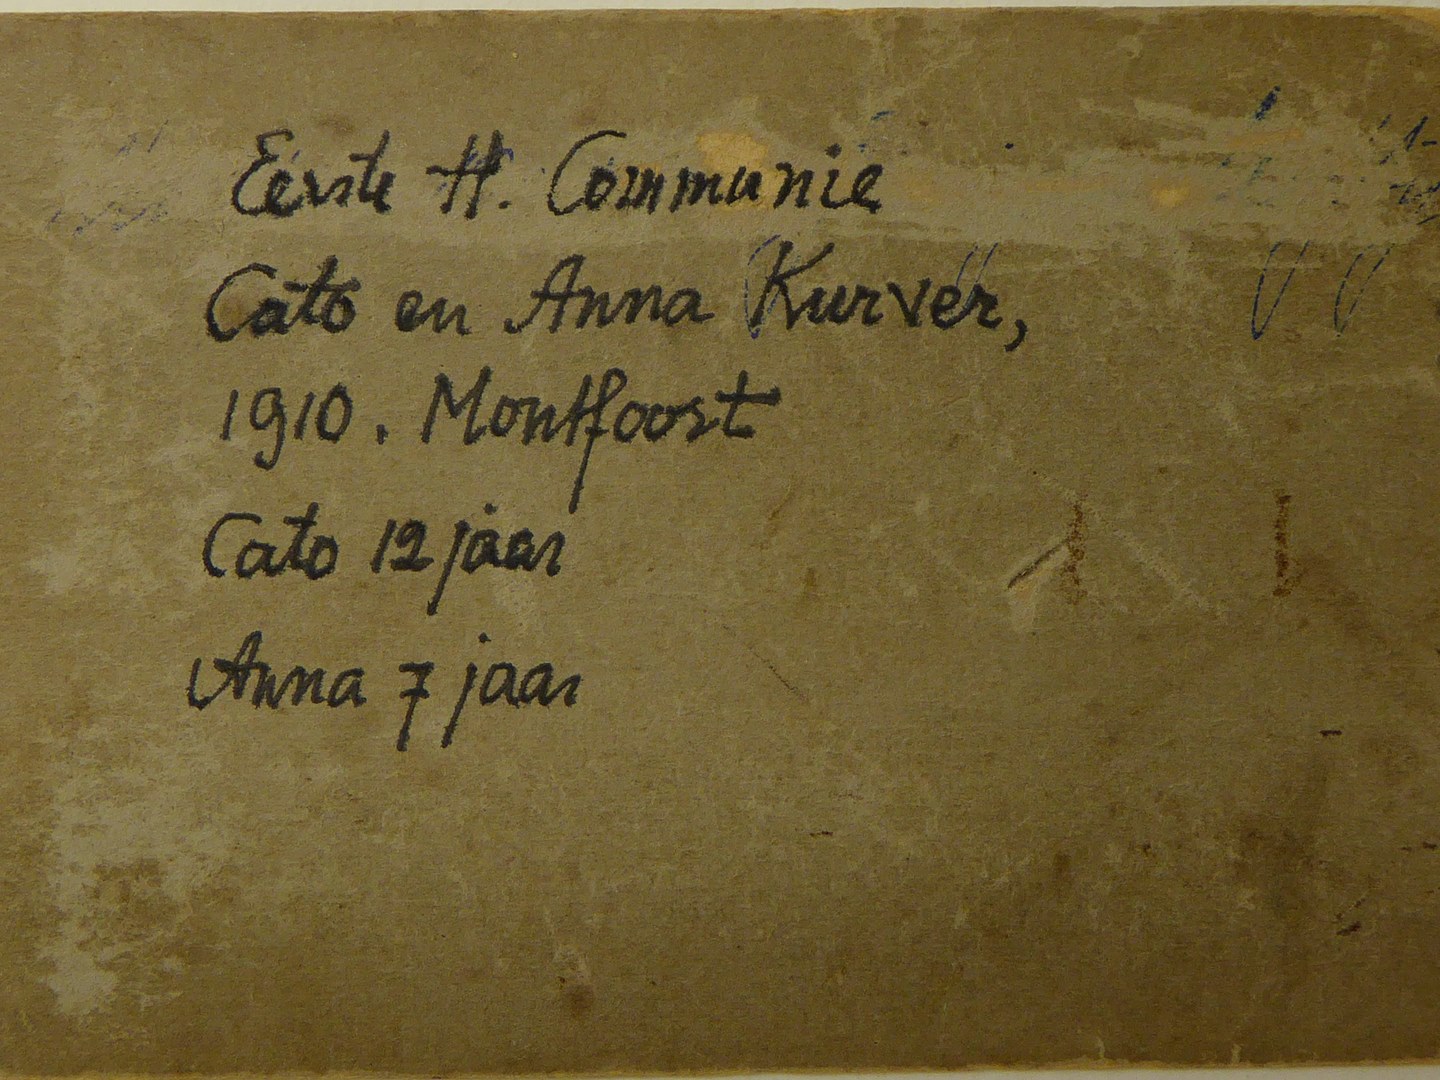 Eerste H. Communie
Cato en Anna Kurver,
1910. Montfoort
Cato 12 jaar
Anna 7 jaar